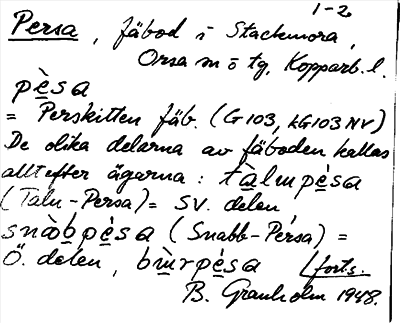 1-2
Persa, fäbod i Stackmora,
Orsa sn ö tg, Kopparb. l.
pèsa
= Perskitten fäb. (G103, kG103 NV)
De olika delarna av fäboden kallas
allt efter ägarna: tàlmpèsa
(Talm-Persa) = SV. delen
snàbpèsa (Snabb-Persa) =
Ö. delen, bùrpèsa (forts.
B. Granholm 1948.